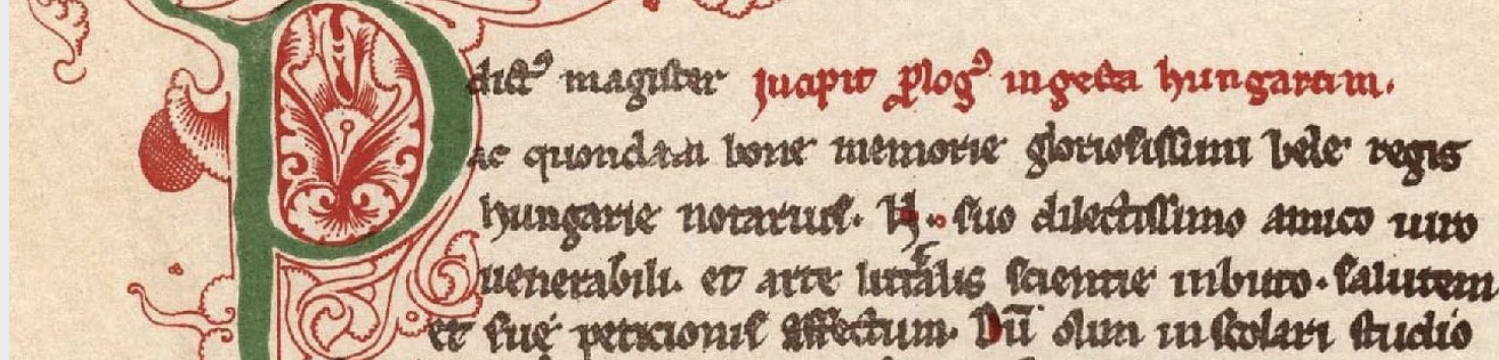 P dictꝰ magister Incipit ꝓlogꝰ in gesta hungarum.
ac quondam bone memorie gloriosissimi bele regis
hungarie notarius. N. suo dilectissimo amico uiro
uenerabili. et arte litt̾alis scientie inbuto. salutem
et sue peticionis affectum. Dū olim in scolari studio